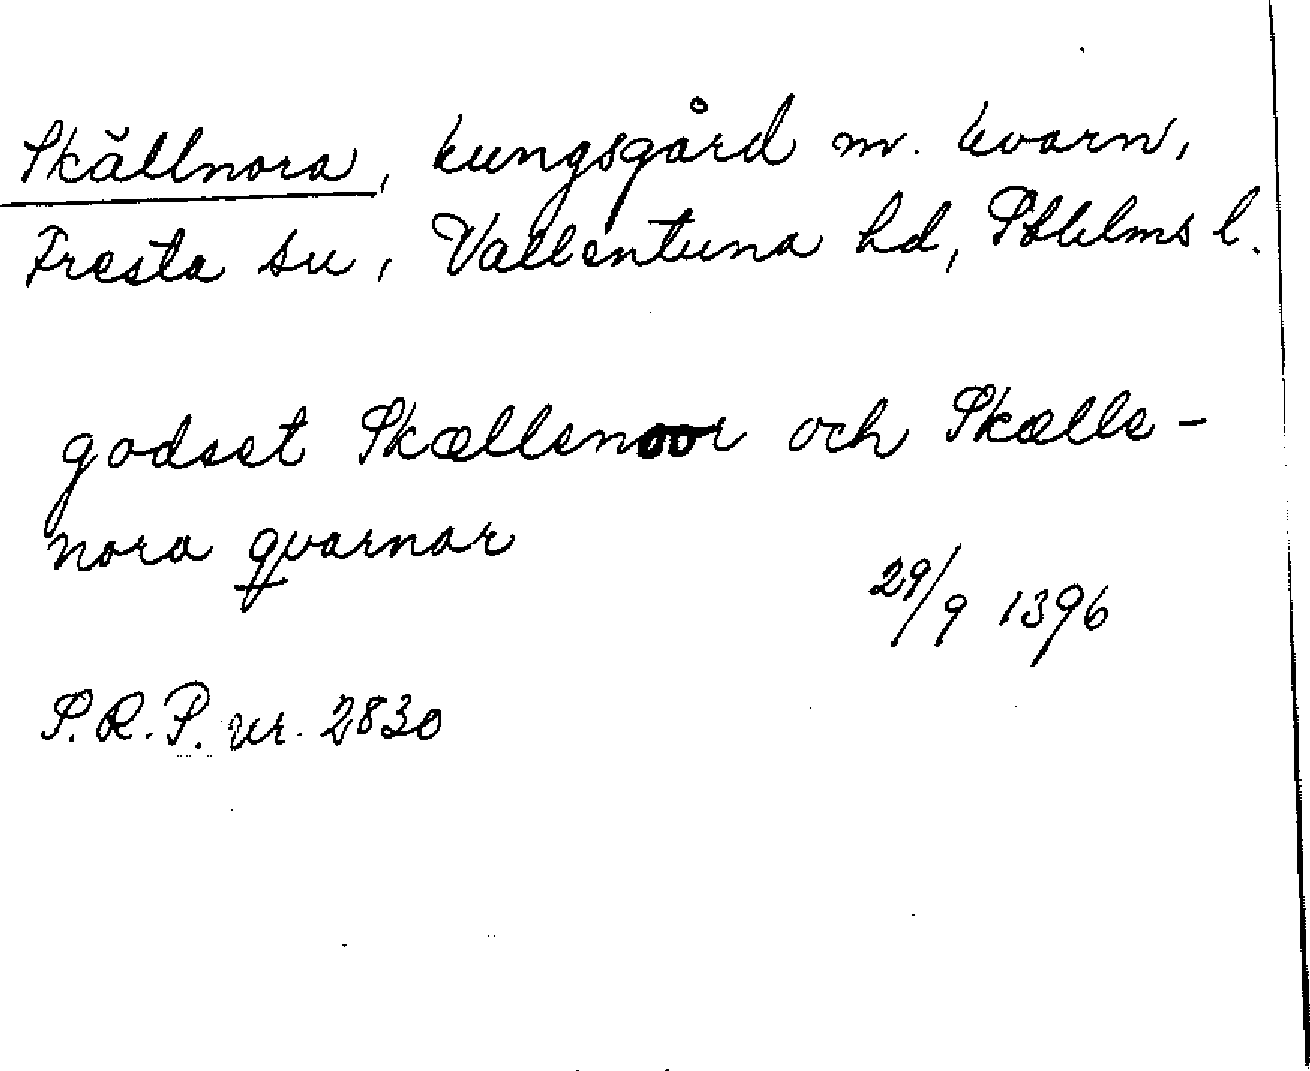 Skällnora, kungsgård m. kvarn,
Fresta sn, Vallentuna hd, Sthlms l.
godset Skællsnoor och Skælls-
nora qvarnar
29/9 1396
S.R.P. nr. 2830